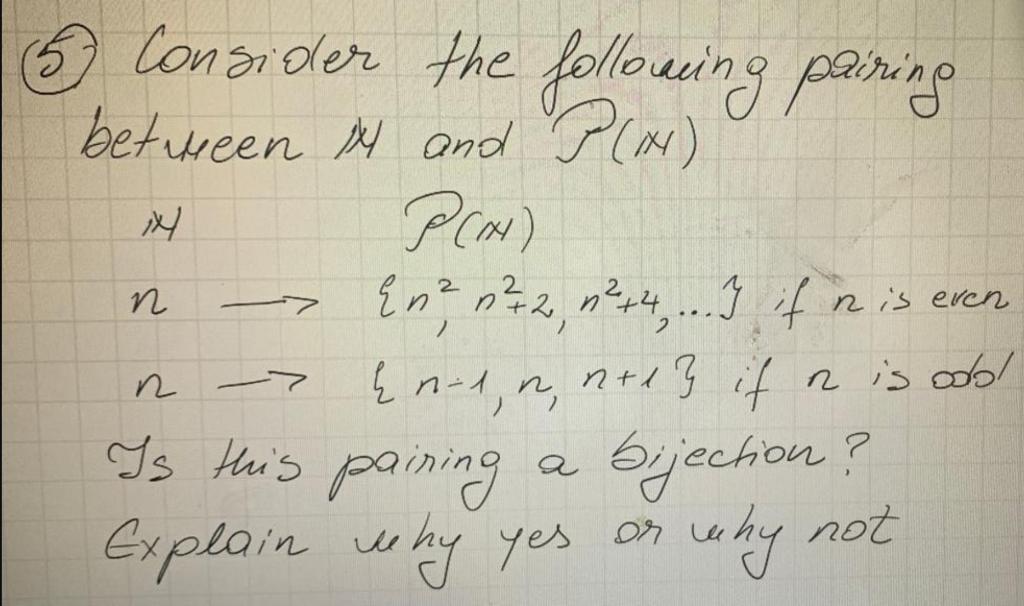 ⑤ Consider the following pairing
between ℕ and P(ℕ)
ℕ P(ℕ)
n → {n², n²+2, n²+4, ...} if n is even
n → {n-1, n, n+1} if n is odd
Is this pairing a bijection?
Explain why yes or why not